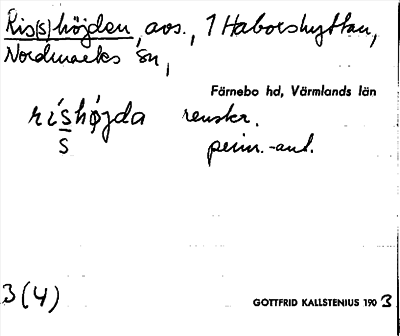 Ris(s)höjden, avs., 1 Haborshyttan,
Nordmarks sn,
Färnebo hd, Värmlands län
ríshǿjda renskr.
s perm.-ant.
3(4)
GOTTFRID KALLSTENIUS 1903